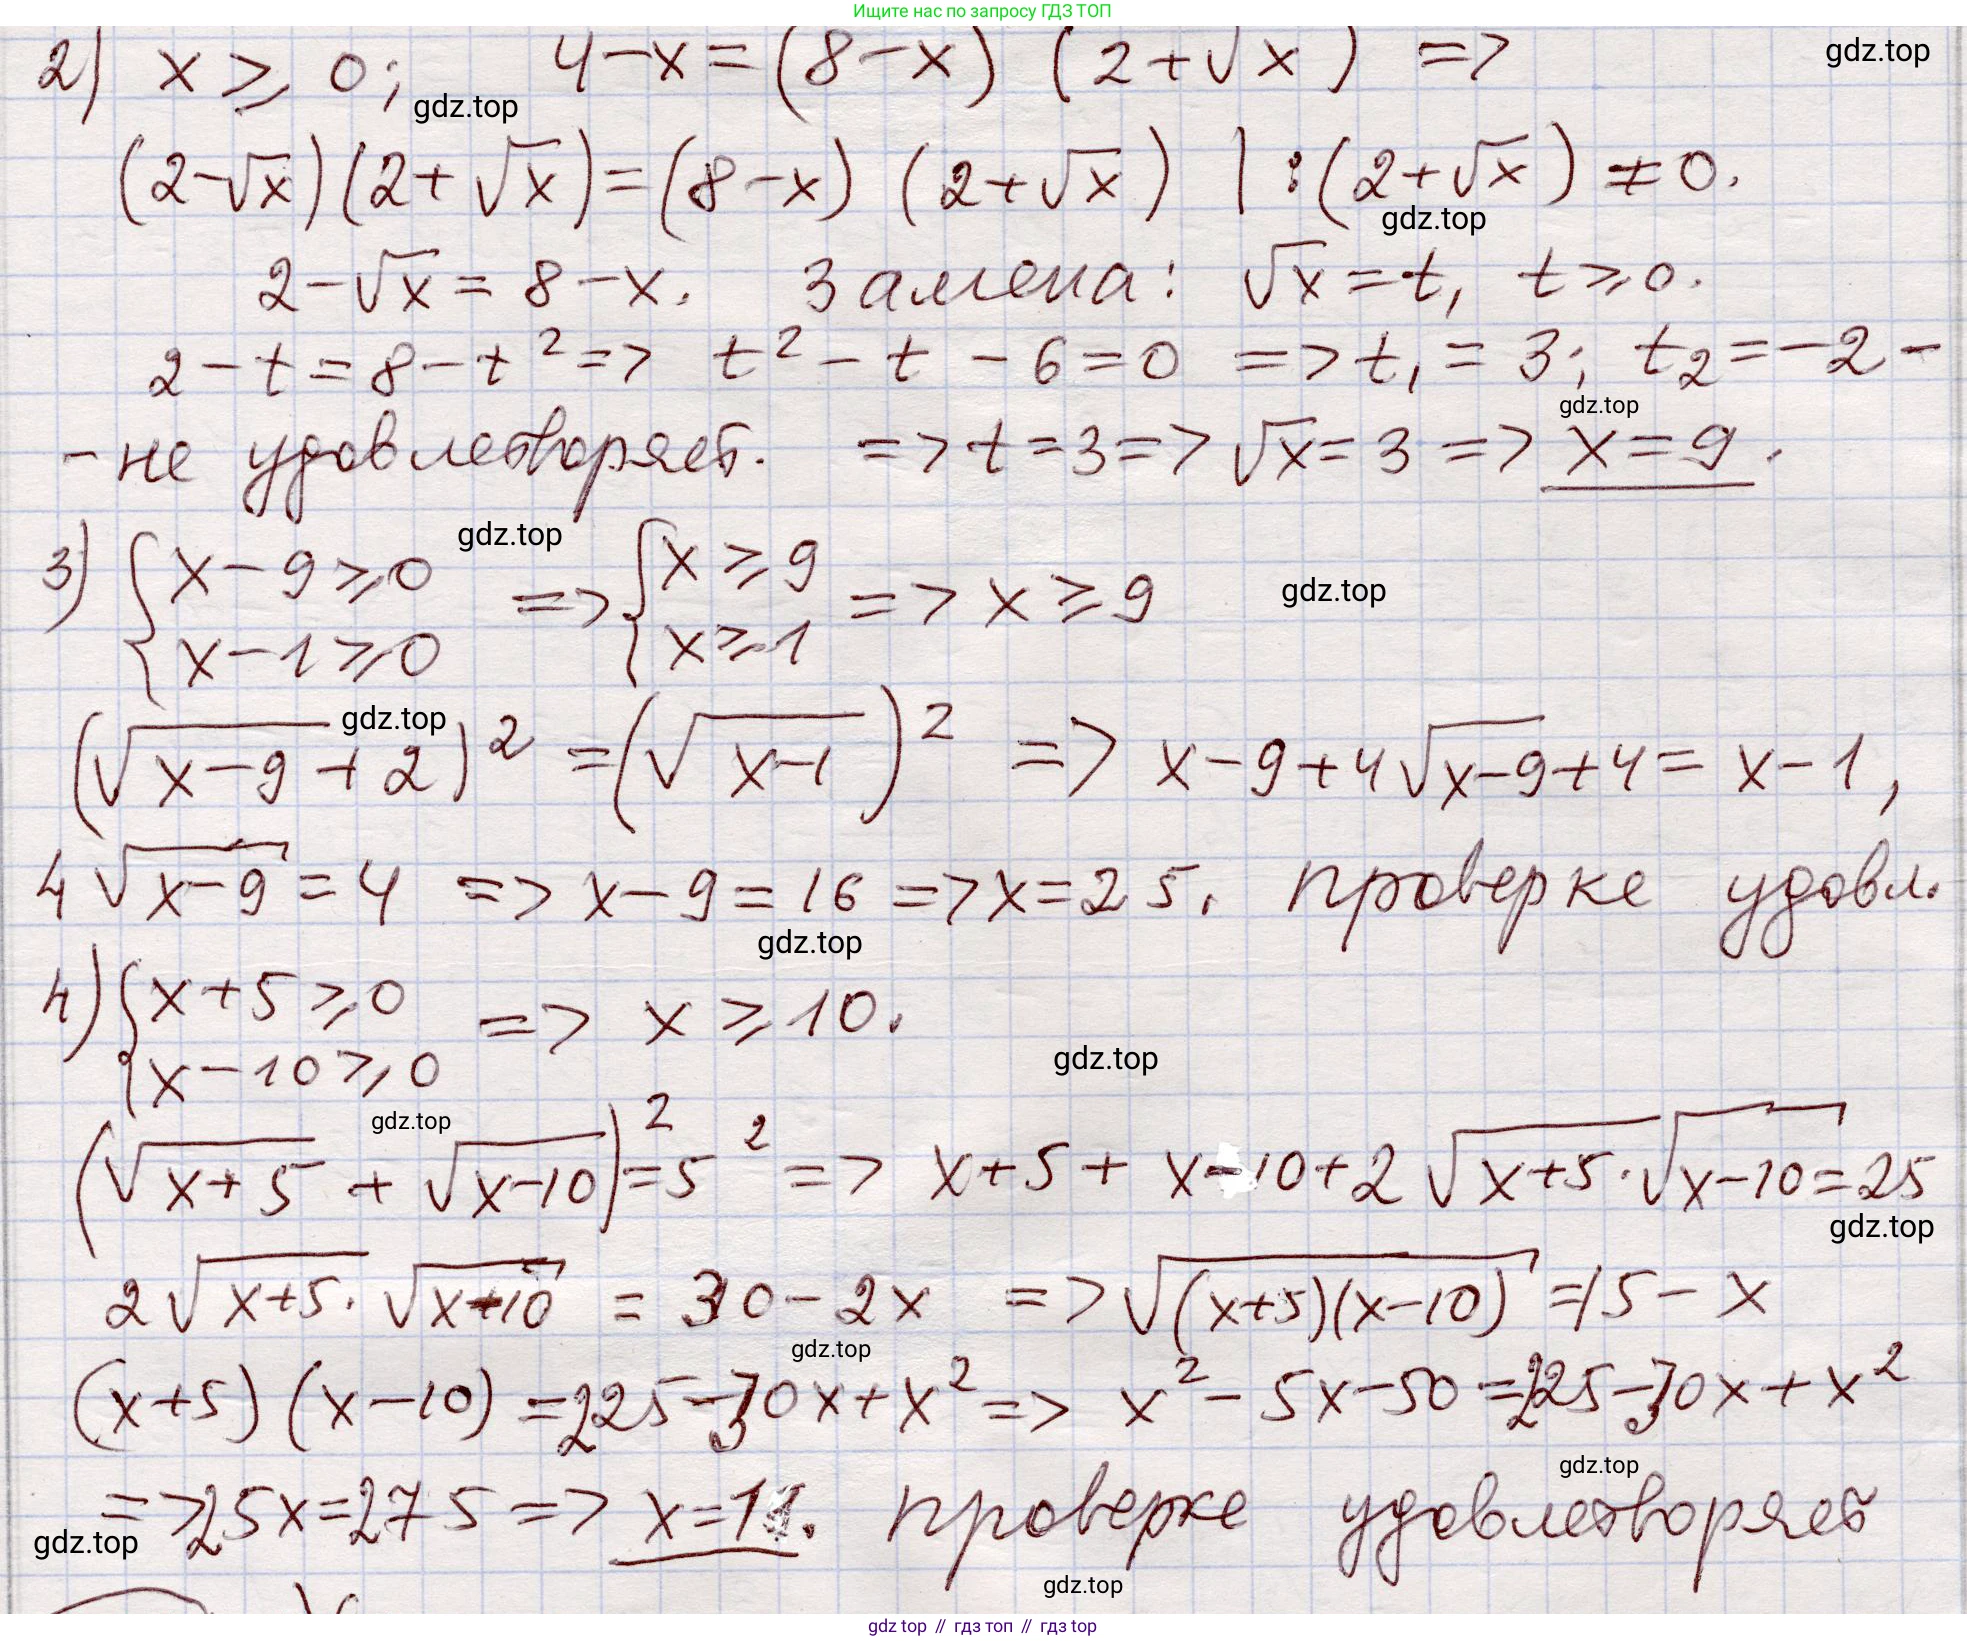 Ищите нас по запросу ГДЗ ТОП
2) x ⩾ 0; 4-x=(8-x) (2+√x) => gdz.top
gdz.top
(2-√x)(2+√x)=(8-x) (2+√x) |:(2+√x) ≠0.
gdz.top
2-√x=8-x. Замена: √x=t, t⩾0.
2-t=8-t²=> t²-t-6=0 => t₁=3; t₂=-2-
gdz.top
-не удовлетворяет. => t=3=> √x=3 => x=9.
3) {x-9⩾0 gdz.top => {x⩾9 => x⩾9 gdz.top
{x-1⩾0 {x⩾1
gdz.top
(√x-9+2)²=(√x-1)² => x-9+4√x-9+4=x-1,
4√x-9=4 => x-9=16 => x=25. проверке удовл.
gdz.top
4) {x+5⩾0 => x⩾10.
{x-10⩾0 gdz.top
gdz.top
(√x+5 + √x-10)²=5² => x+5+x-10+2√x+5·√x-10=25
gdz.top
2√x+5·√x-10 = 30-2x => √(x+5)(x-10)=15-x
gdz.top
(x+5)(x-10)=225-30x+x² => x²-5x-50=225-30x+x²
gdz.top
=>25x=275=> x=11. проверке удовлетворяет
gdz.top
gdz.top
gdz top // гдз топ // гдз top